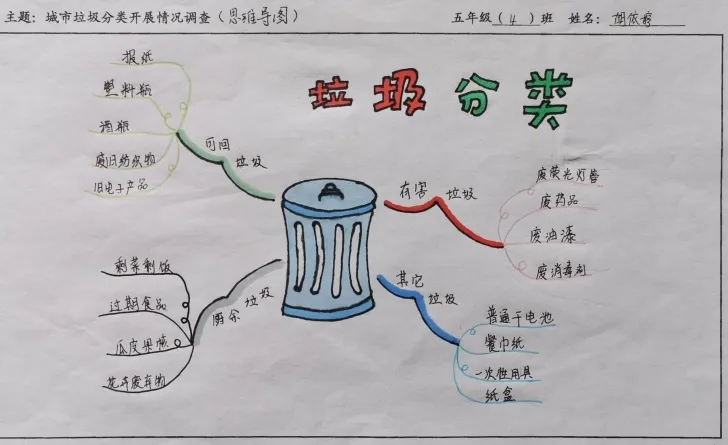 主题：城市垃圾分类开展情况调查(思维导图)
五年级(4)班 姓名：胡依婷
垃圾分类
可回垃圾
报纸
塑料瓶
酒瓶
废旧纺织物
旧电子产品
有害垃圾
废荧光灯管
废药品
废油漆
废消毒剂
厨余垃圾
剩菜剩饭
过期食品
瓜皮果核
花卉废弃物
其它垃圾
普通干电池
餐巾纸
一次性用具
纸盒